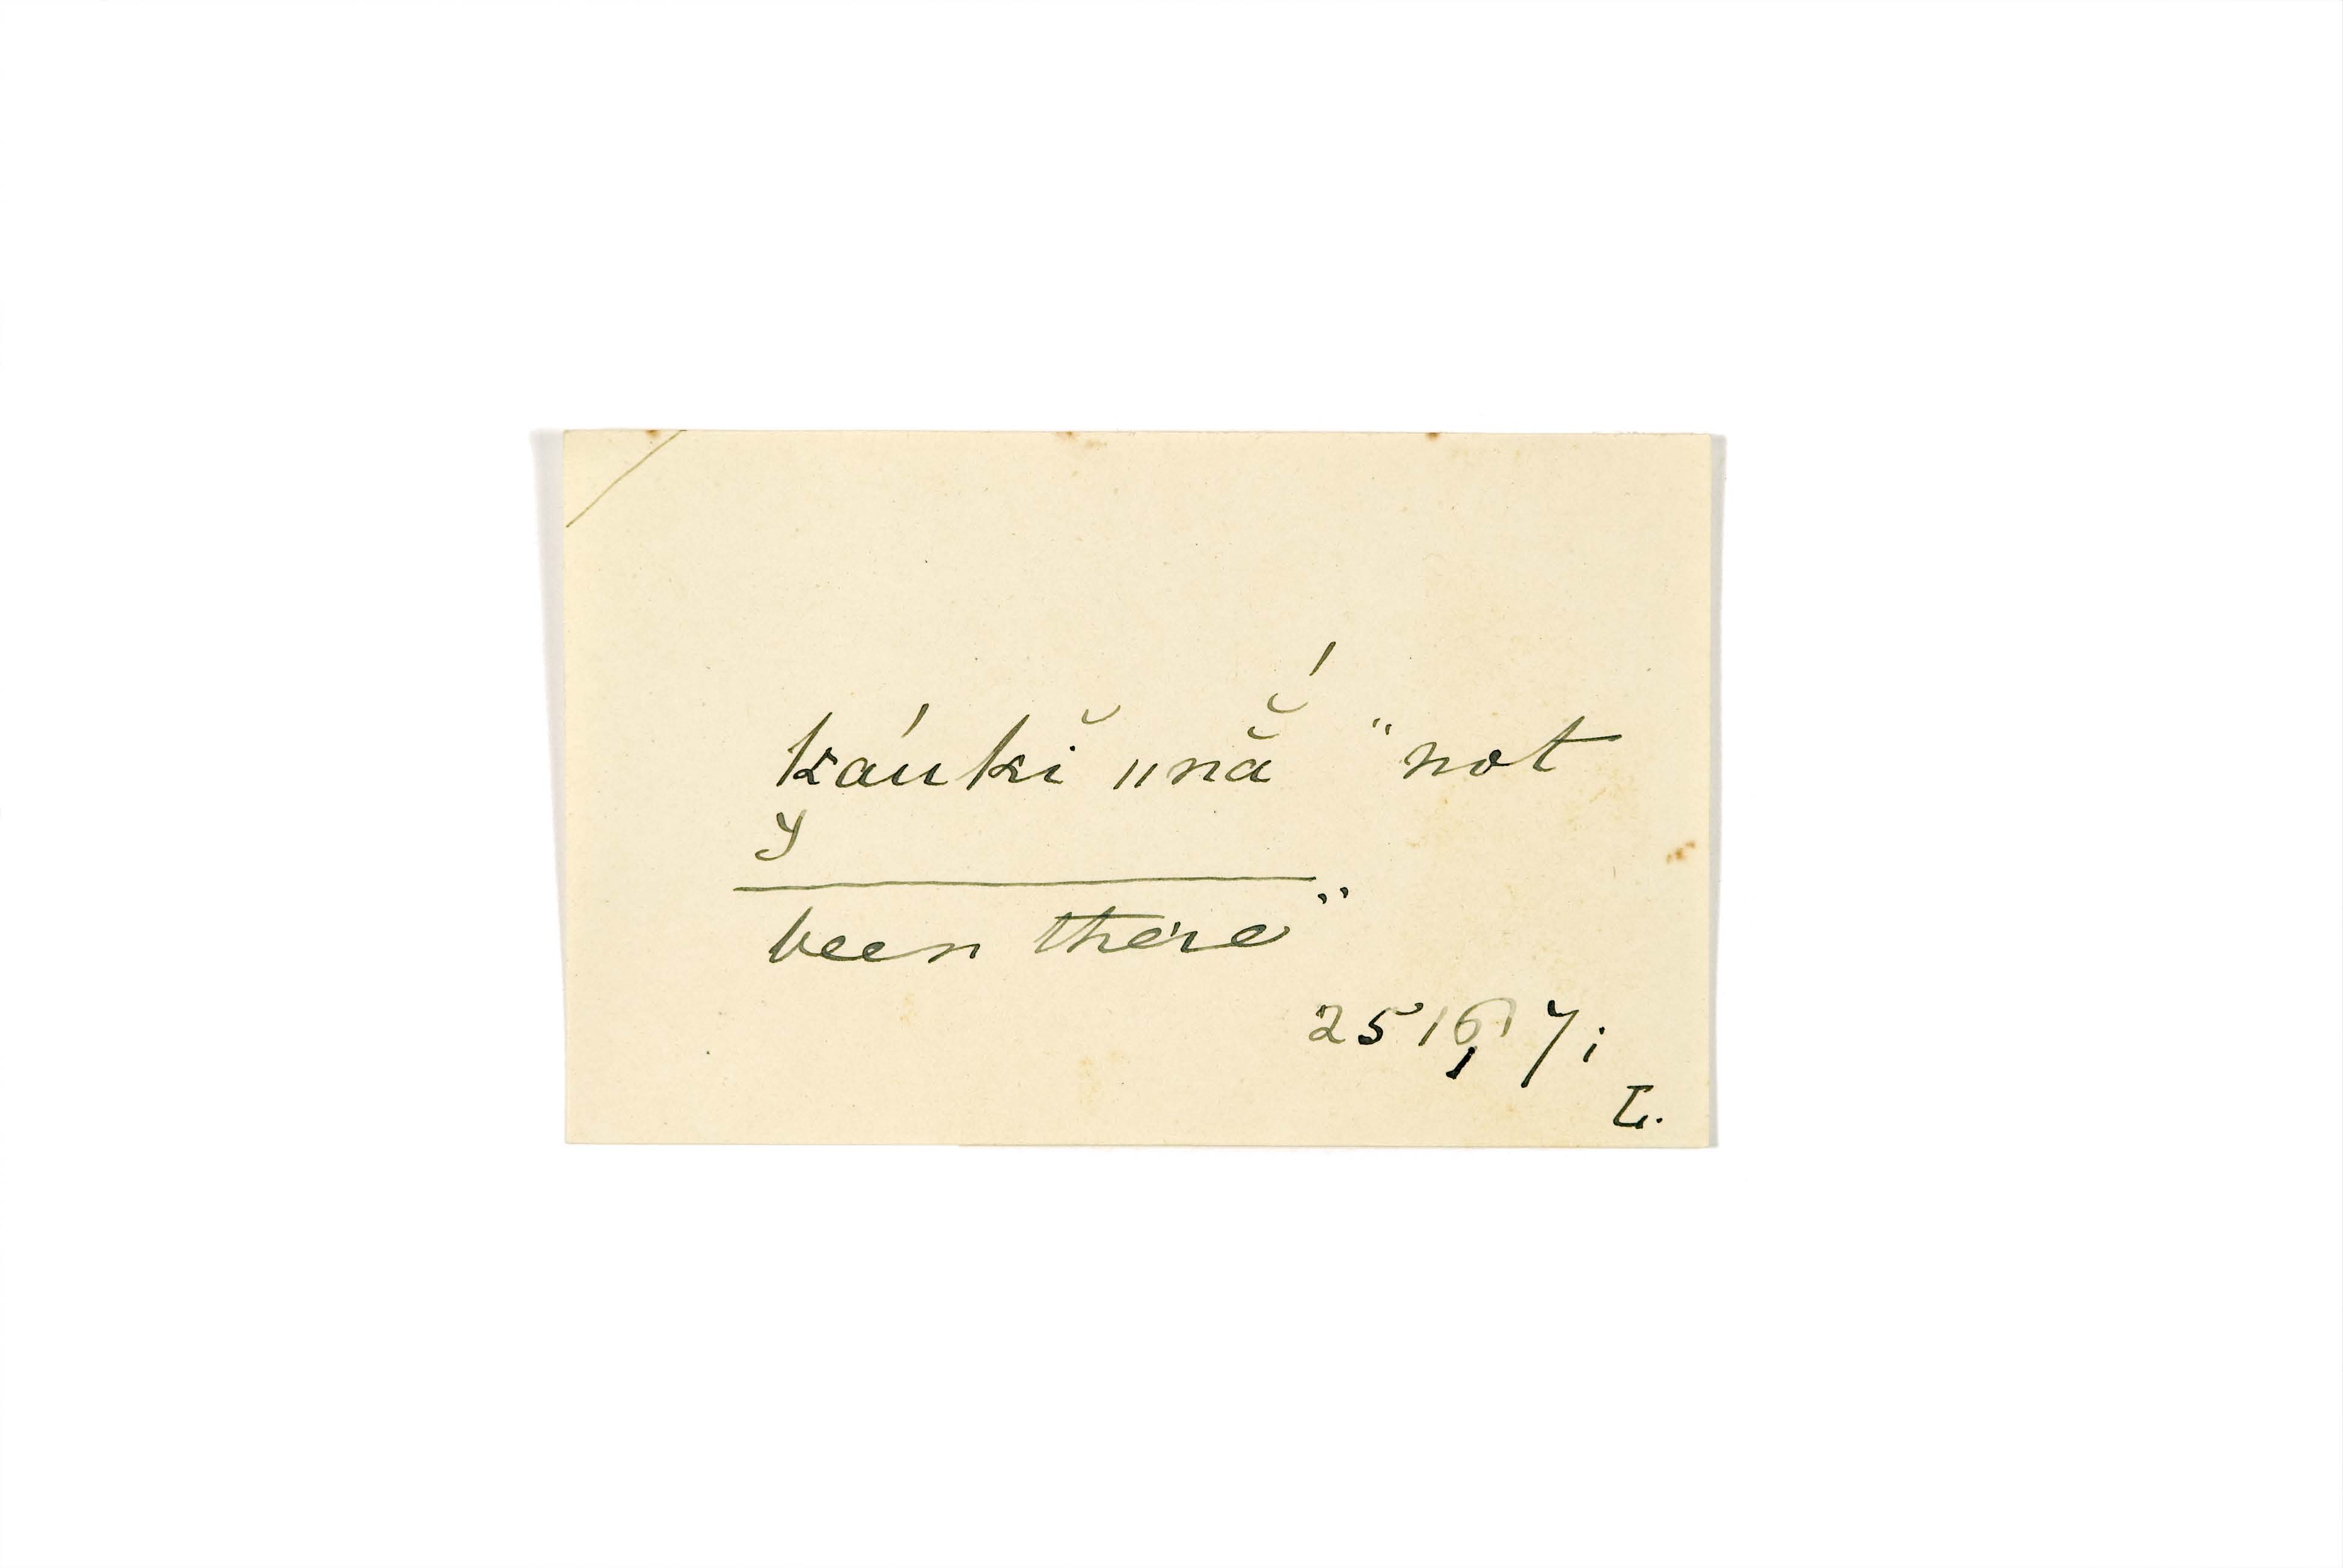 káukĭ „nā̆́ "not
y
been there"
2516, 7i
L.